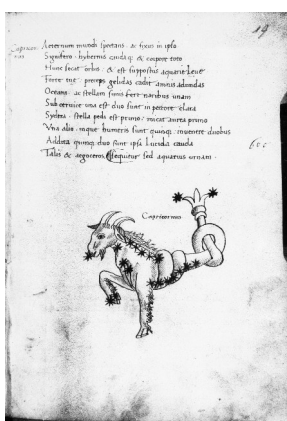 19
Capricornus
Aeternum mundi spetans · ac fixus in ipso
Signifero · hybernis undiq & corpore toto
Hunc secat orbis · & est suppostus aquarie
Forte tue · preceps gelidas cadit amnis ad undas
Oceani · ac stellam summis fert naribus unam
Sub cervice una est duo sunt in pectore clara
Sydera · stella pedi est primo · micat antea primo
Una alio · inque humeris sunt quinq · invenere duobus
Addita quinq duo sunt ipsa lucida cauda
Talis & aegoceros sequitur sed aquarius urnam ·
Capricornus